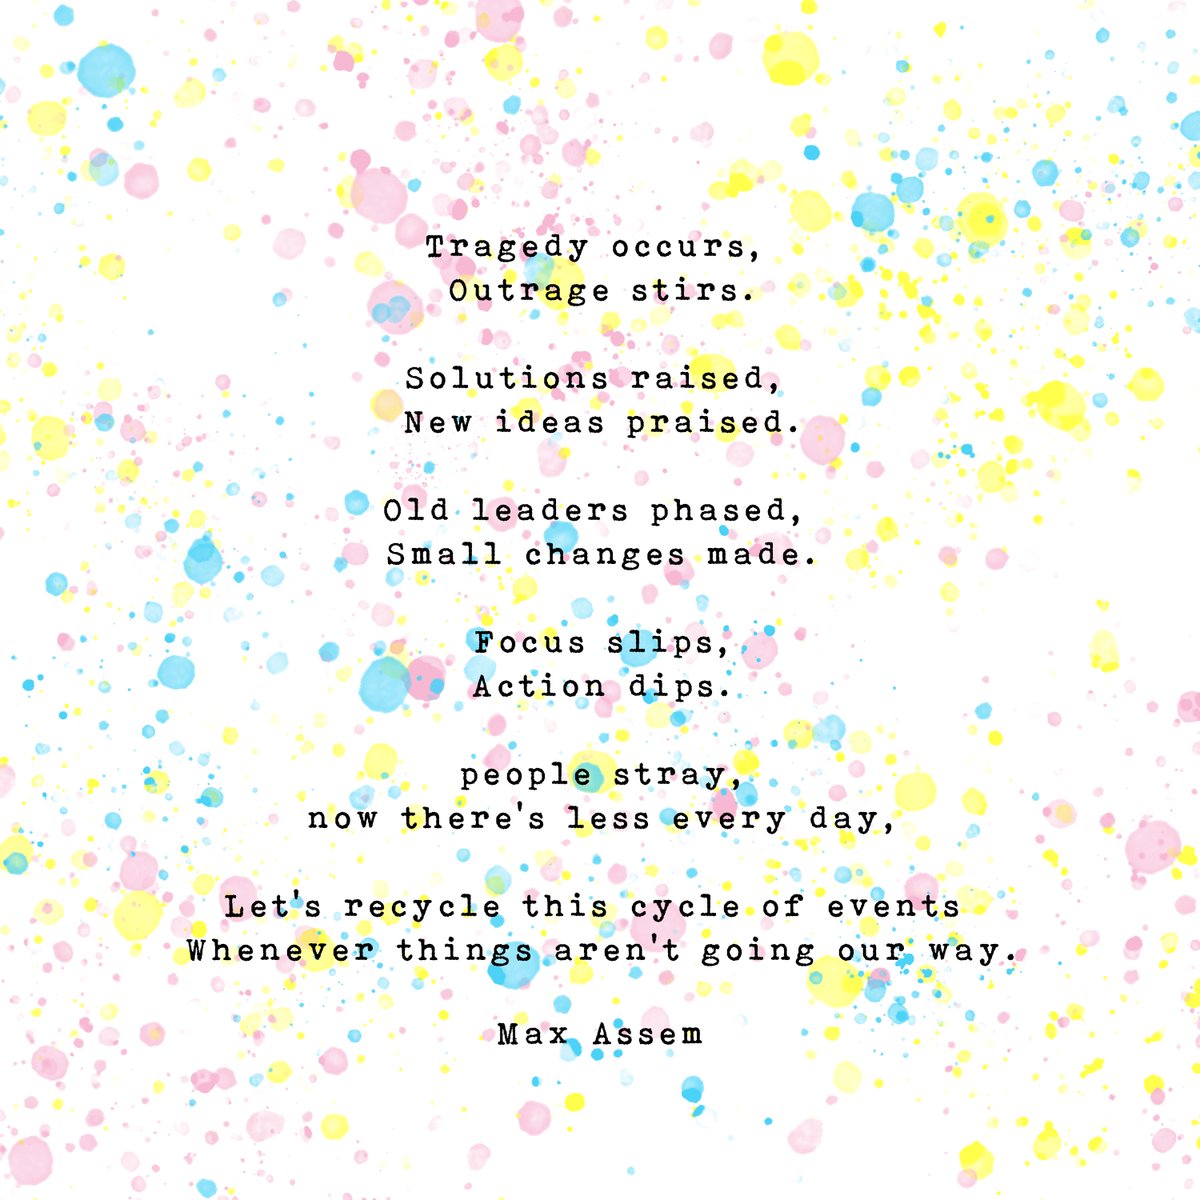 Tragedy occurs,
Outrage stirs.
Solutions raised,
New ideas praised.
Old leaders phased,
Small changes made.
Focus slips,
Action dips.
people stray,
now there's less every day,
Let's recycle this cycle of events
Whenever things aren't going our way.
Max Assem